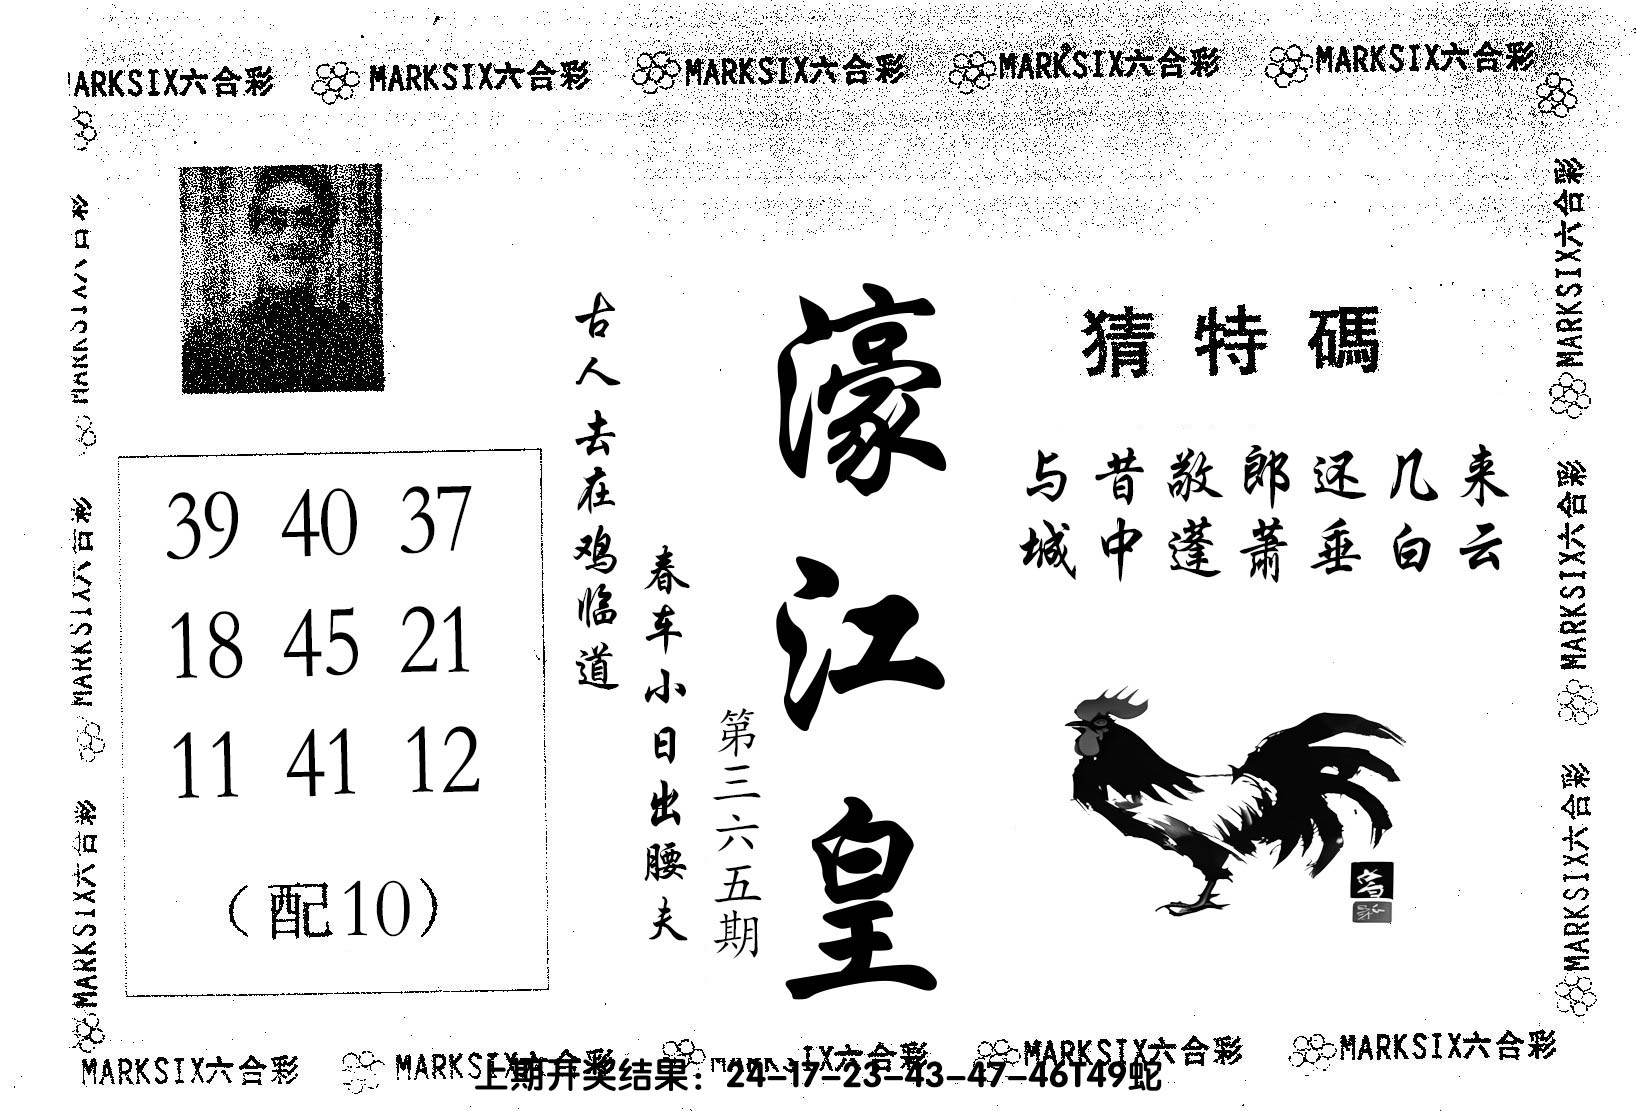 MARKSIX六合彩 MARKSIX六合彩 MARKSIX六合彩 MARKSIX六合彩
猜特碼
与昔敬郎还几来
城中蓬萧垂白云
濠江皇
第三六五期
春车小日出腰夫
古人去在鸡临道
39 40 37
18 45 21
11 41 12
（配10）
MARKSIX六合彩
MARKSIX六合彩
MARKSIX六合彩
MARKSIX六合彩
MARKSIX六合彩
MARKSIX六合彩
MARKSIX六合彩 MARKSIX六合彩 MARKSIX六合彩 MARKSIX六合彩
上期开奖结果：24-17-23-43-47-46T49蛇